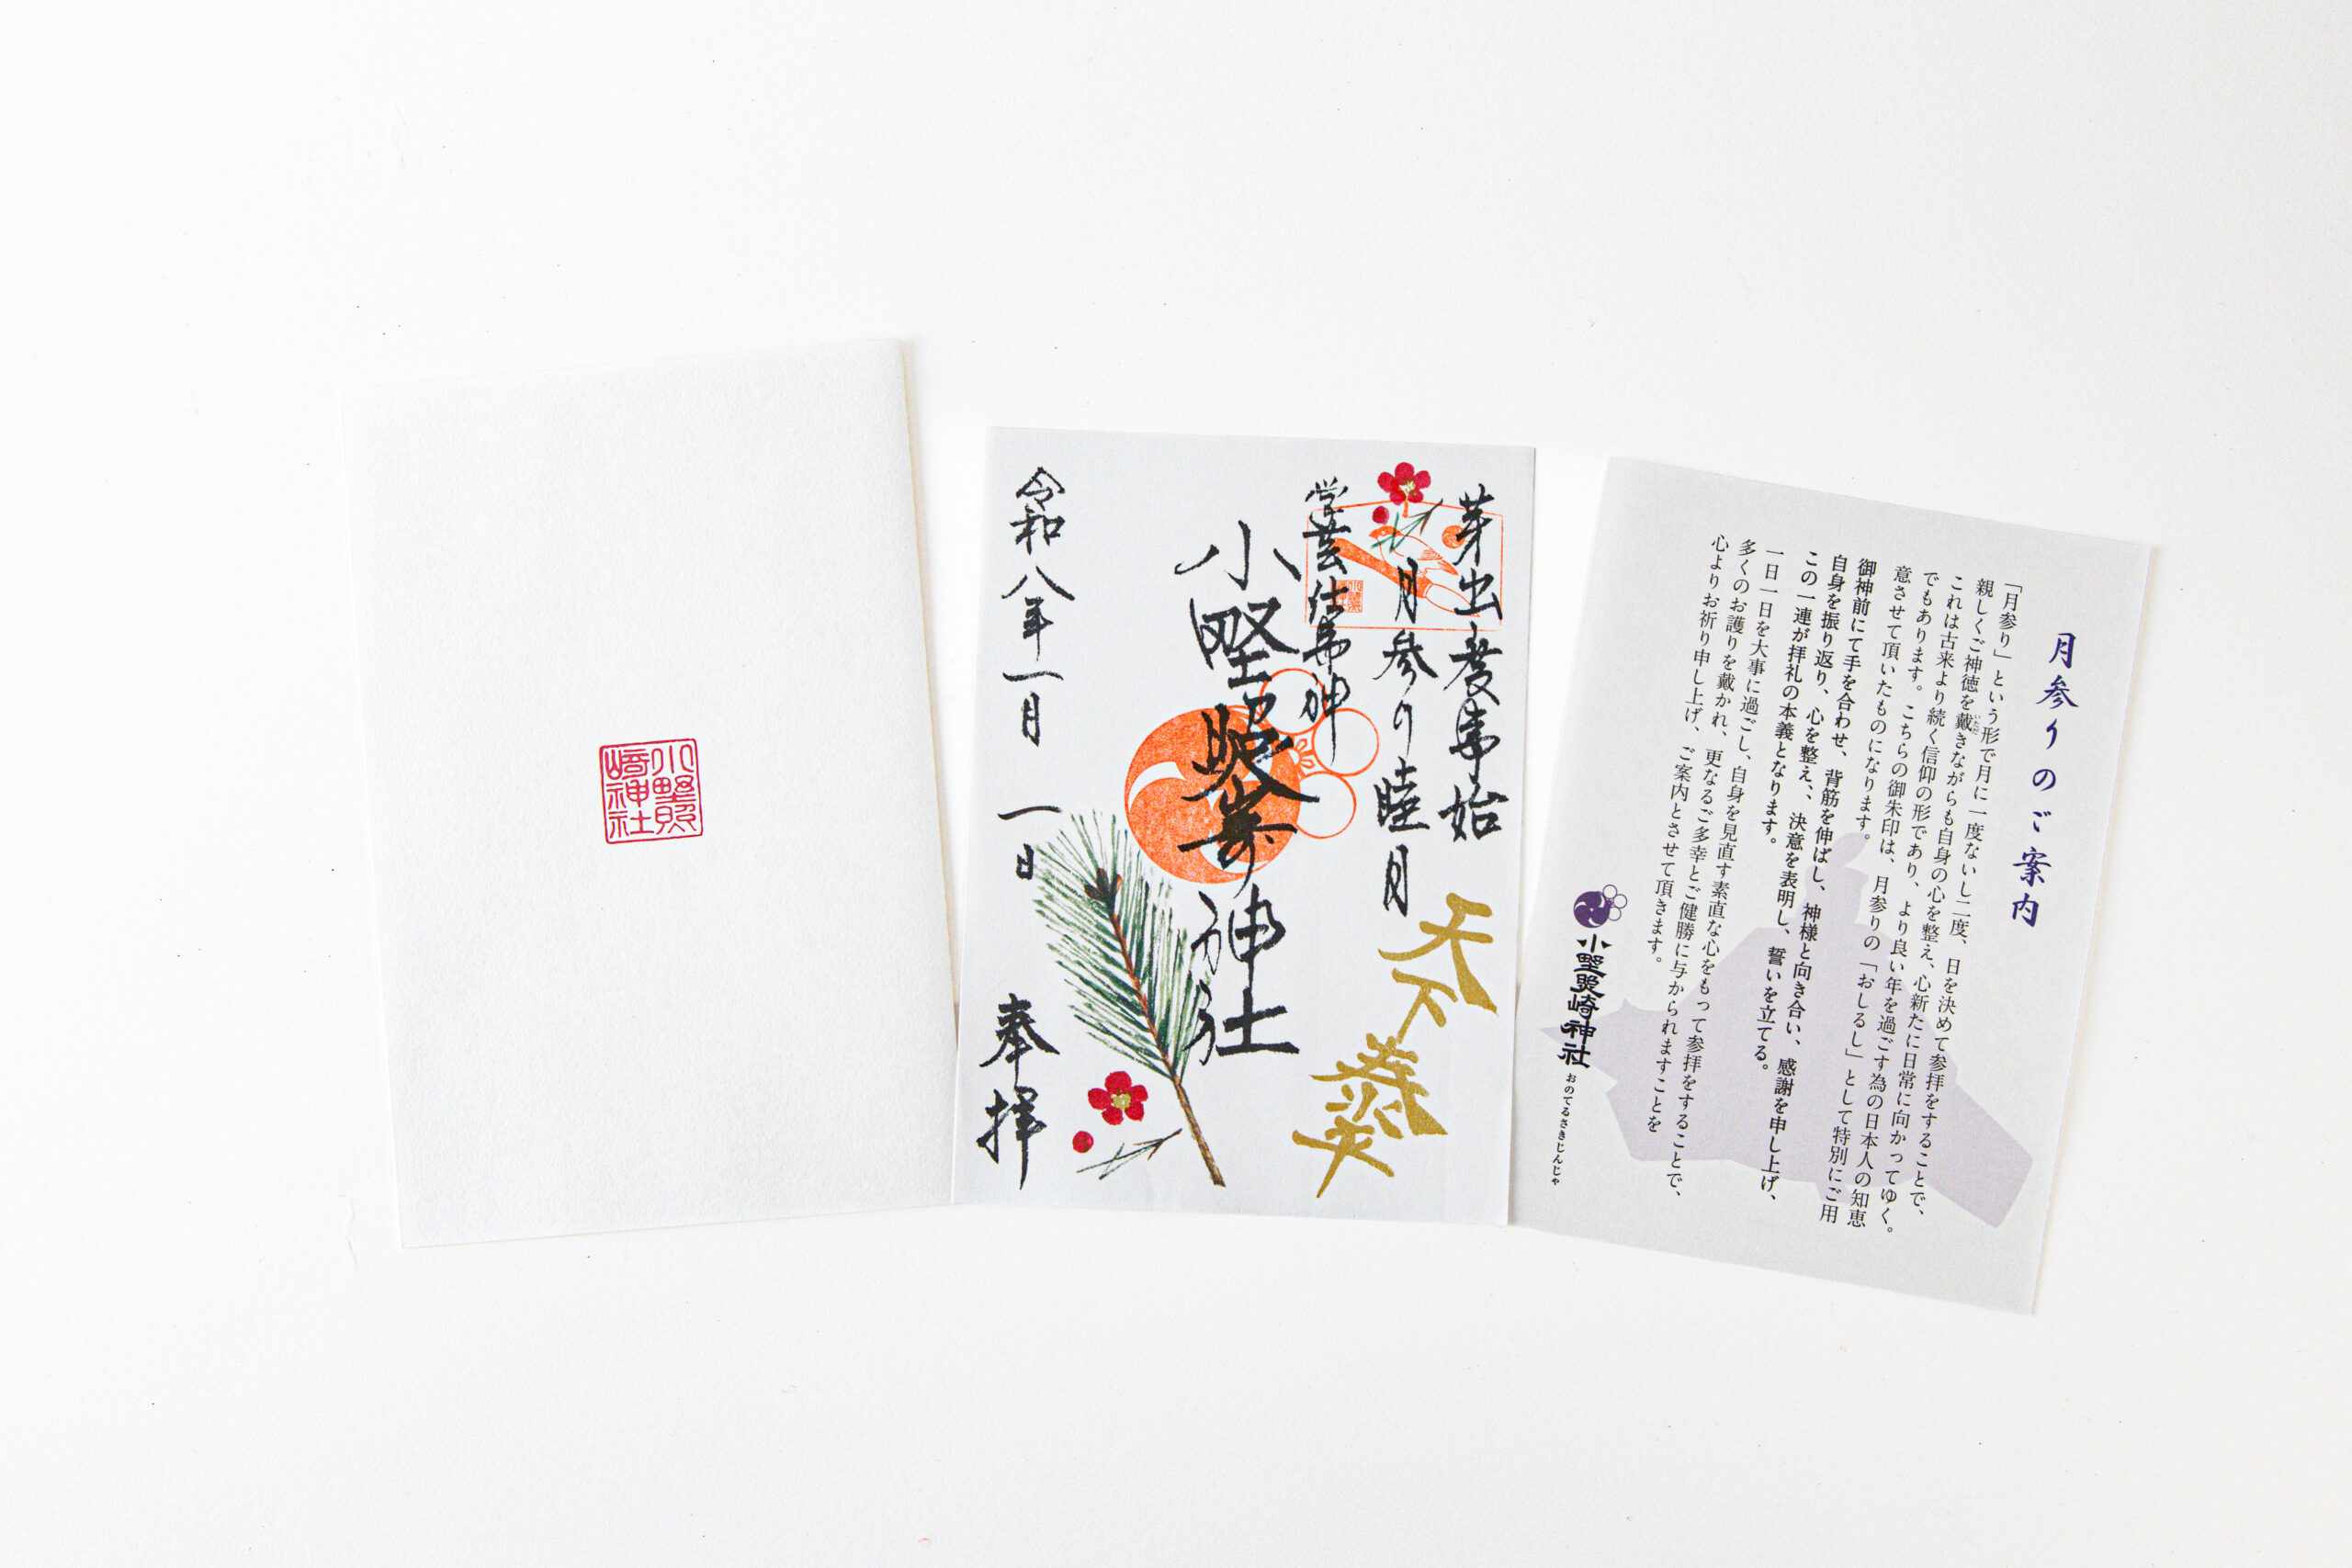 月参りのご案内
「月参り」という形で月に一度ないし二度、日を決めて参拝をすることで、
親しくご神徳を戴きながらも自身の心を整え、心新たに日常に向かってゆく。
いただ
これは古来より続く信仰の形であり、より良い年を過ごす為の日本人の知恵
でもあります。こちらの御朱印は、月参りの「おしるし」として特別にご用
意させて頂いたものになります。
御神前にて手を合わせ、背筋を伸ばし、神様と向き合い、感謝を申し上げ、
自身を振り返り、心を整え、、決意を表明し、誓いを立てる。
この一連が拝礼の本義となります。
一日一日を大事に過ごし、自身を見直す素直な心をもって参拝をすることで、
多くのお護りを戴かれ、更なるご多幸とご健勝に与かられますことを
心よりお祈り申し上げ、ご案内とさせて頂きます。
小野照崎神社
おのてるさきじんじゃ
芽出度事始
月参り睦月
天下泰平
学芸仕事神
小野照崎神社
令和八年一月一日
奉拝
小野照
崎神社